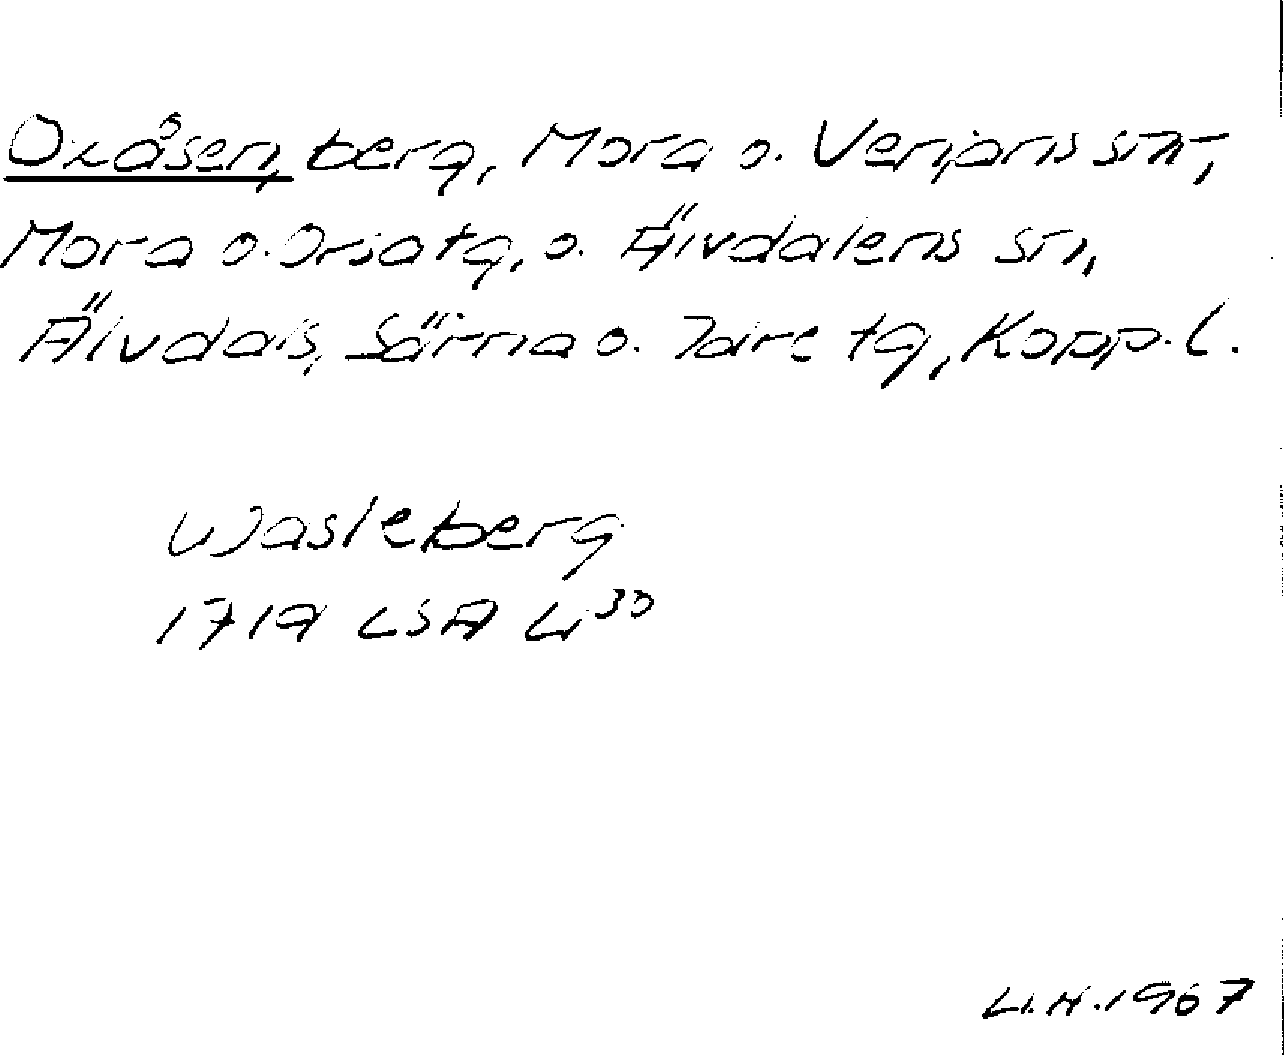 Oxåsen, berg, Mora o. Venjans snr,
Mora o. Orsa tg, o. Älvdalens sn,
Älvdals, Särna o. Idre tg, Kopp. l.
Wasleberg
1719 LSA W 30
U.H. 1967